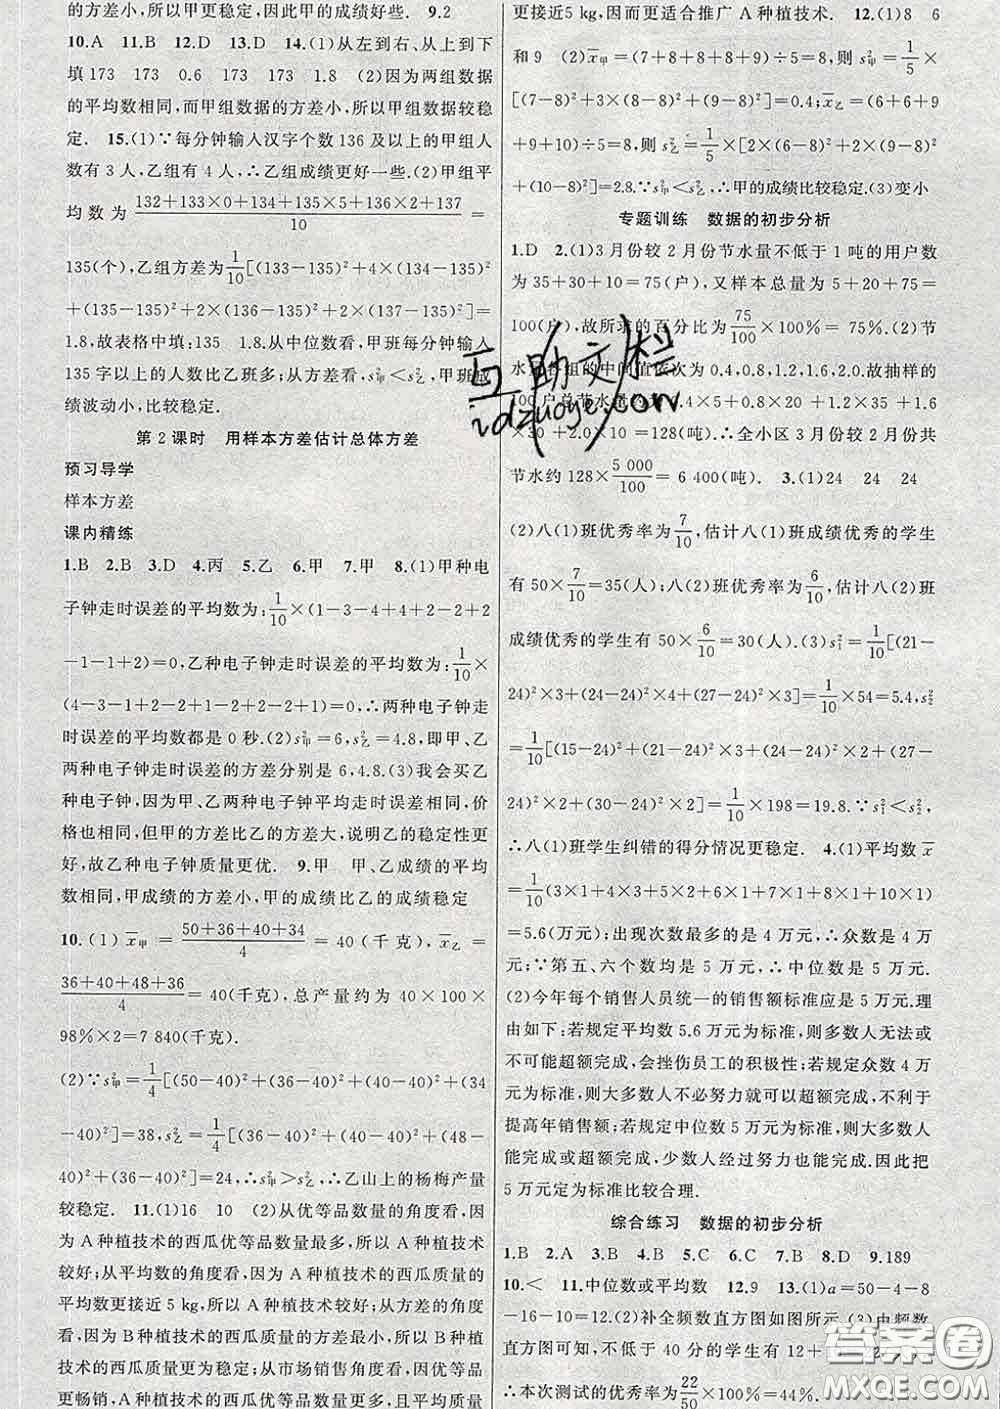 的方差小,所以甲更稳定,因此甲的成绩好些. 9.2
10.A 11.B 12.D 13.D 14.(1)从左到右、从上到下
填 173 173 0.6 173 173 1.8 (2)因为两组数据
的平均数相同,而甲组数据的方差小,所以甲组数据较稳
定. 15.(1)∵每分钟输入汉字个数 136 及以上的甲组人
数有 3 人,乙组有 4 人,∴乙组成绩更好一些.(2)甲组平
均数为 (132+133×0+134+135×5+136×2+137)/10 =
135(个),乙组方差为 1/10[(133-135)²+4×(134-135)²
+(135-135)²+2×(136-135)²+2×(137-135)²]=
1.8,故表格中填:135 1.8.从中位数看,甲班每分钟输入
135 字以上的人数比乙班多;从方差看,s²甲<s²乙,甲班成
绩波动小,比较稳定.
第 2 课时 用样本方差估计总体方差
预习导学
样本方差
课内精练
1.B 2.B 3.D 4.丙 5.乙 6.甲 7.甲 8.(1)甲种电
子钟走时误差的平均数为:1/10×(1-3-4+4+2-2+2
-1-1+2)=0,乙种电子钟走时误差的平均数为:1/10×
(4-3-1+2-2+1-2-2+2+1)=0,∴两种电子钟走
时误差的平均数都是 0 秒.(2)s²甲=6,s²乙=4.8,即甲、乙
两种电子钟走时误差的方差分别是 6,4.8.(3)我会买乙
种电子钟,因为甲、乙两种电子钟平均走时误差相同,价
格也相同,但甲的方差比乙的方差大,说明乙的稳定性更
好,故乙种电子钟质量更优. 9.甲 甲、乙成绩的平均
数相同,甲成绩的方差小,甲的成绩比乙的成绩稳定
10.(1) x̄甲 = (50+36+40+34)/4 = 40(千克),x̄乙 =
(36+40+48+36)/4 = 40(千克),总产量约为 40×100×
98%×2=7 840(千克).
(2)∵s²甲=1/4[(50-40)²+(36-40)²+(40-40)²+(34
-40)²]=38,s²乙=1/4[(36-40)²+(40-40)²+(48-
40)²+(36-40)²]=24,∴s²甲>s²乙,∴乙山上的杨梅产量
较稳定. 11.(1)16 10 (2)从优等品数量的角度看,因
为 A 种植技术的西瓜优等品数量最多,所以 A 种植技术
较好;从平均数的角度看,因 A 种植技术的西瓜质量的
平均数更接近 5 kg,所以 A 种植技术较好;从方差的角度
看,因为 B 种植技术的西瓜质量的方差最小,所以 B 种植
技术的西瓜质量更为稳定;从市场销售角度看,因优等品
更畅销,A 种植技术的西瓜优等品数量更多,且平均质量
更接近5 kg,因而更适合推广 A 种植技术. 12.(1)8 6
和 9 (2)x̄甲=(7+8+8+8+9)÷5=8,则 s²甲=1/5
×[(7-8)²+3×(8-8)²+(9-8)²]=0.4;x̄乙=(6+6+9
+9+10)÷5=8,则 s²乙=1/5×[2×(6-8)²+2×(9-8)²
+(10-8)²]=2.8.∵s²甲<s²乙,∴甲的成绩比较稳定.(3)变小
专题训练 数据的初步分析
1.D 2.(1)3 月份较 2 月份节水量不低于 1 吨的用户数
为 35+30+10=75(户),又样本总量为 5+20+75=
100(户),故所求的百分比为 75/100×100%= 75%.(2)节
水量各组的中间值依次为 0.4,0.8,1.2,1.6,2.0.故抽样的
100 户总节水量约为 0.4×5+0.8×20+1.2×35+1.6
×30+2.0×10=128(吨).∴全小区 3 月份较 2 月份共
节水约 128×5 000/100= 6 400(吨). 3.(1)24 24 24
(2)八(1)班优秀率为 7/10,估计八(1)班成绩优秀的学生
有 50×7/10=35(人);八(2)班优秀率为 6/10,估计八(2)班
成绩优秀的学生有 50×6/10=30(人).(3)s²₁=1/10[(21-
24)²×3+(24-24)²×4+(27-24)²×3]=1/10×54=5.4,s²₂
=1/10[(15-24)²+(21-24)²×3+(24-24)²×2+(27-
24)²×2+(30-24)²×2]=1/10×198=19.8.∵s²₁<s²₂,
∴八(1)班学生纠错的得分情况更稳定. 4.(1)平均数x̄
=1/10(3×1+4×3+5×2+6×1+7×1+8×1+10×1)
=5.6(万元);出现次数最多的是 4 万元,∴众数是 4 万
元;∵第五、六个数均是 5 万元,∴中位数是 5 万元.
(2)今年每个销售人员统一的销售额标准应是 5 万元.理
由如下:若规定平均数 5.6 万元为标准,则多数人无法或
不可能超额完成,会挫伤员工的积极性;若规定众数 4 万
元为标准,则大多数人不必努力就可以超额完成,不利于
提高年销售额;若规定中位数 5 万元为标准,则大多数人
能完成或超额完成,少数人经过努力也能完成.因此把
5 万元定为标准比较合理.
综合练习 数据的初步分析
1.B 2.A 3.B 4.B 5.C 6.C 7.B 8.D 9.189
10.< 11.中位数或平均数 12.9 13.(1)a=50-4-8
-16-10=12.(2)补全频数直方图如图所示.(3)由频数
直方图可知,不低于 40 分的学生有 12+
∴本次测试的优秀率为 22/50×100%=44%.
互助文档
idzuoye.com
答案圈
MXQE.COM